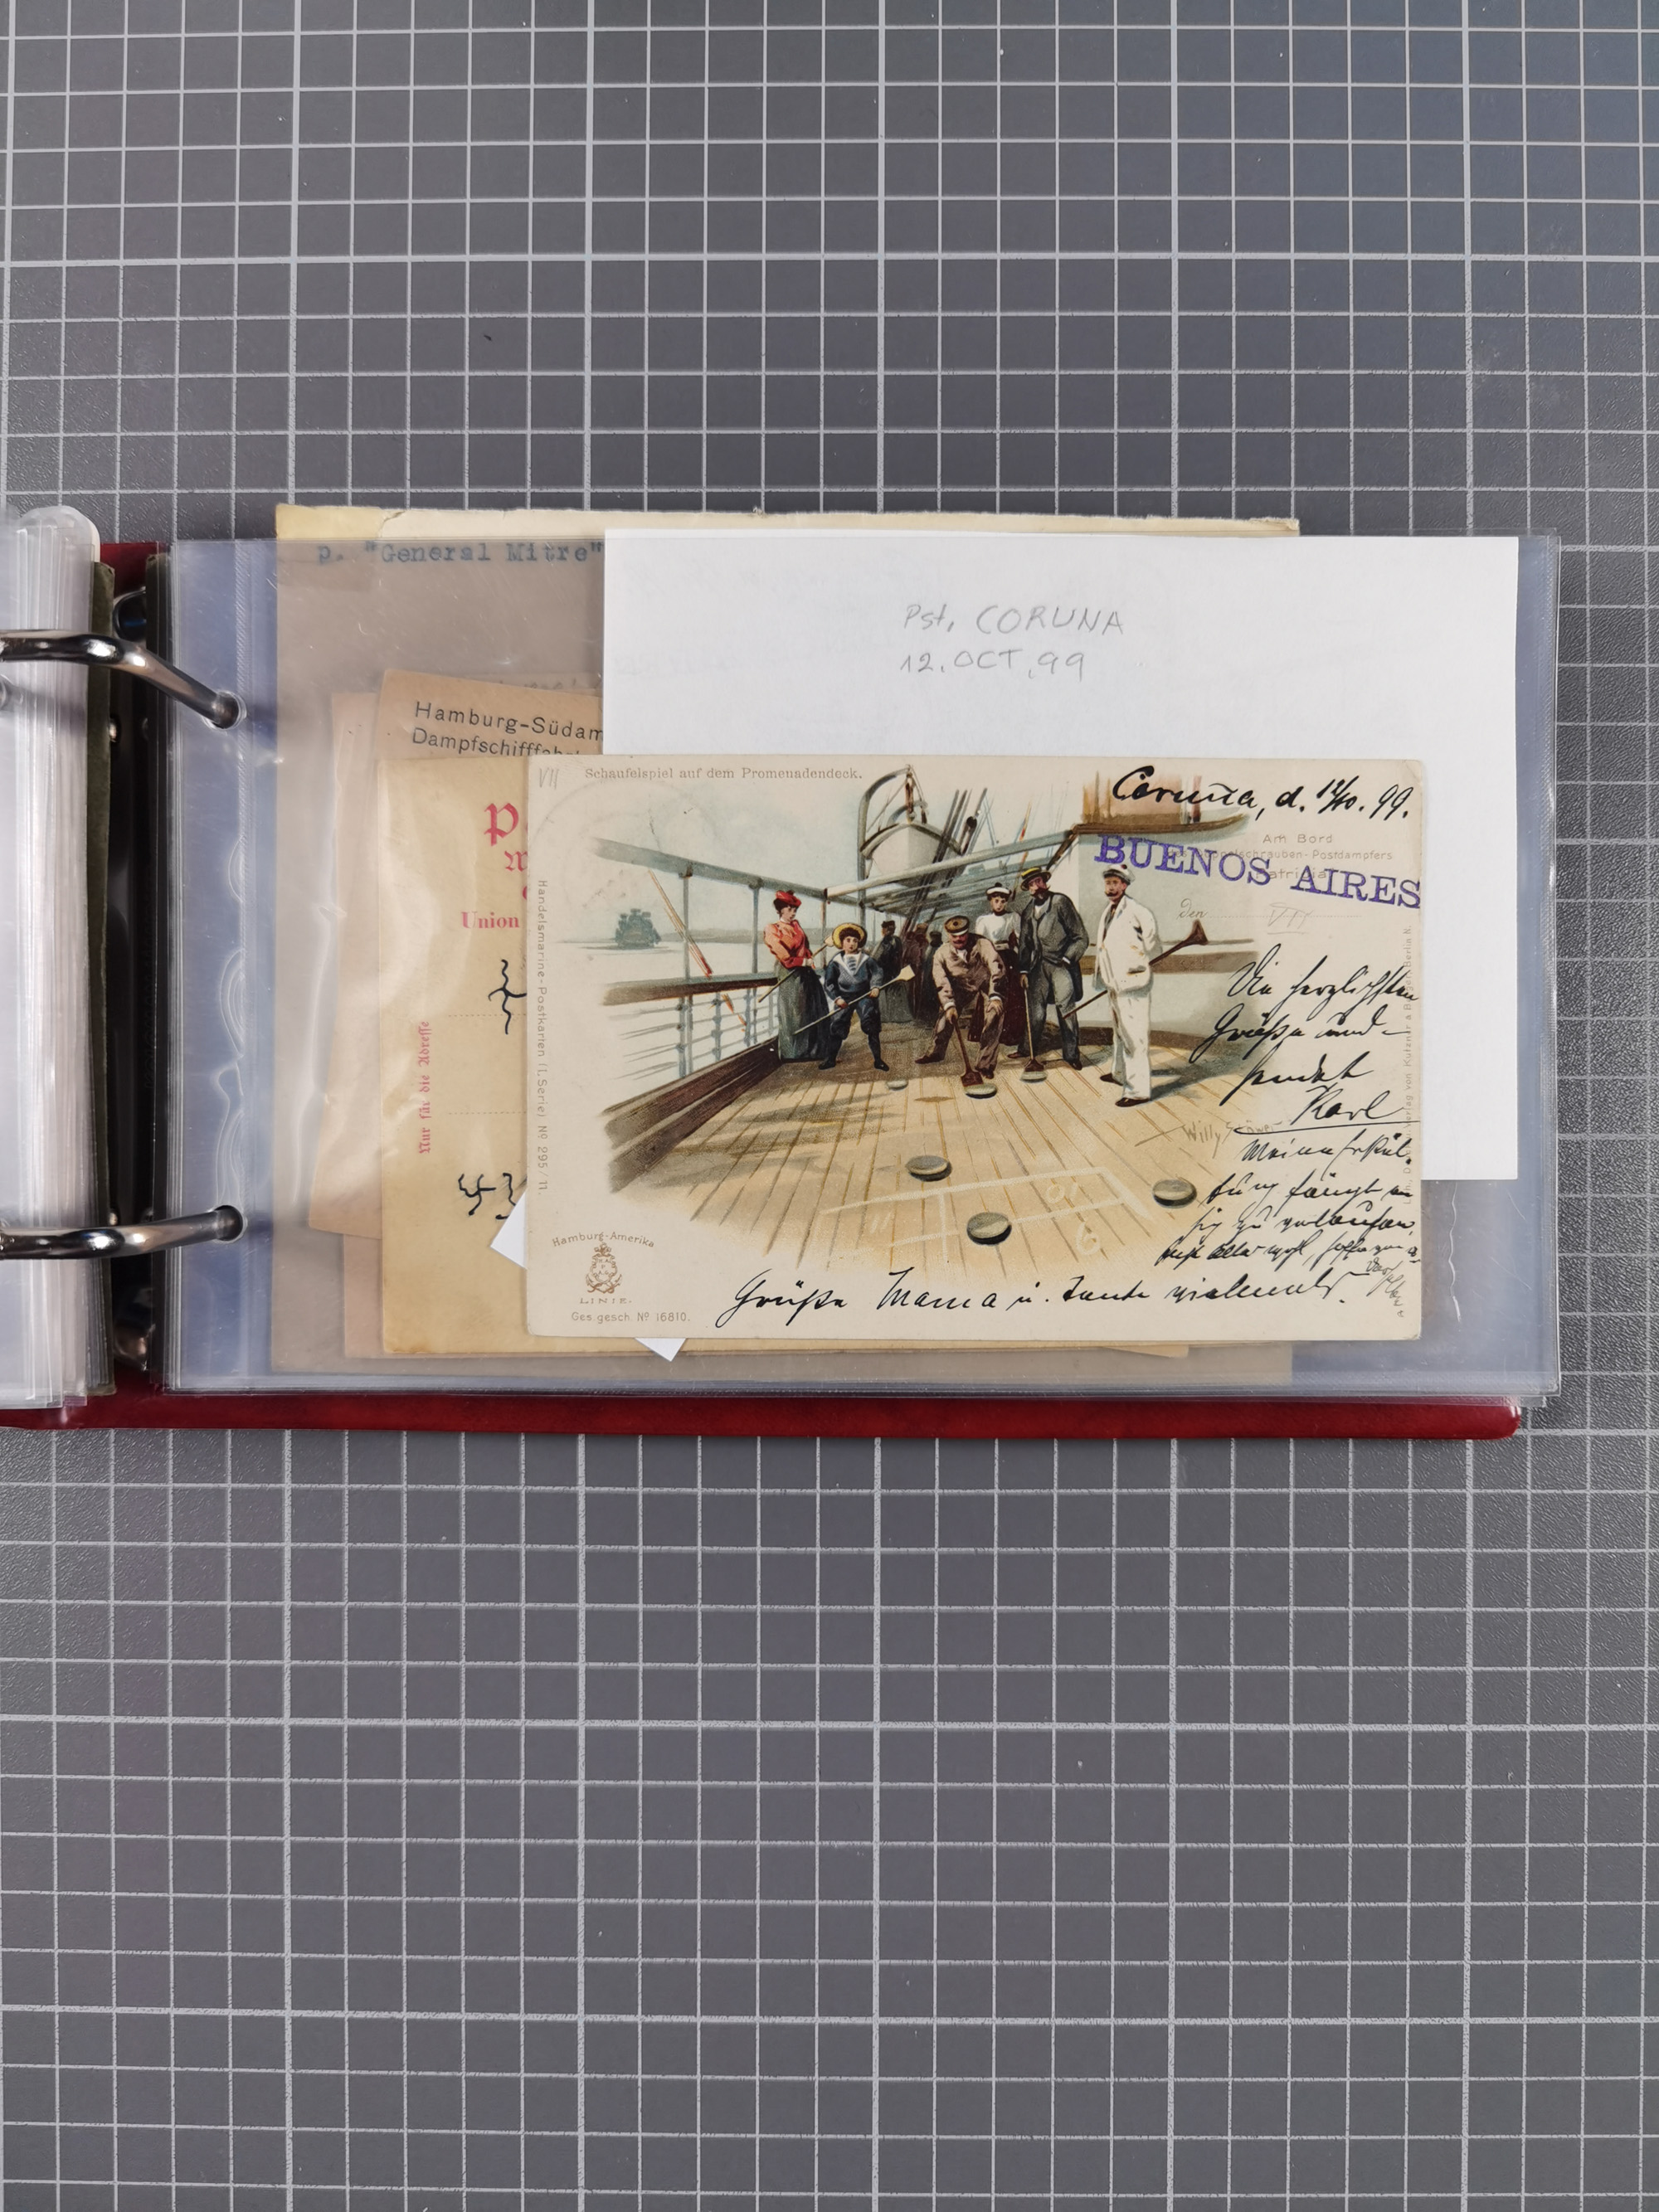 p. "General Mitre"
Pst, CORUNA
12. OCT, 99
Hamburg-Südam
Dampfschifffah
Union
Nur für die Adresse
VII
Schaufelspiel auf dem Promenadendeck.
Coruña, d. 12/10. 99.
Am Bord
schrauben-Postdampfers
BUENOS AIRES
den
VII
Die herzlichsten
Grüße und
sendet
Karl
Willy Stöwer
Meine Erkäl-
tung fängt an
sich zu
Grüße Mama u. Tante vielmals.
Handelsmarine-Postkarten (I. Serie) Nº 295/11
Hamburg-Amerika
LINIE.
Ges. gesch. Nº 16810.
10
6